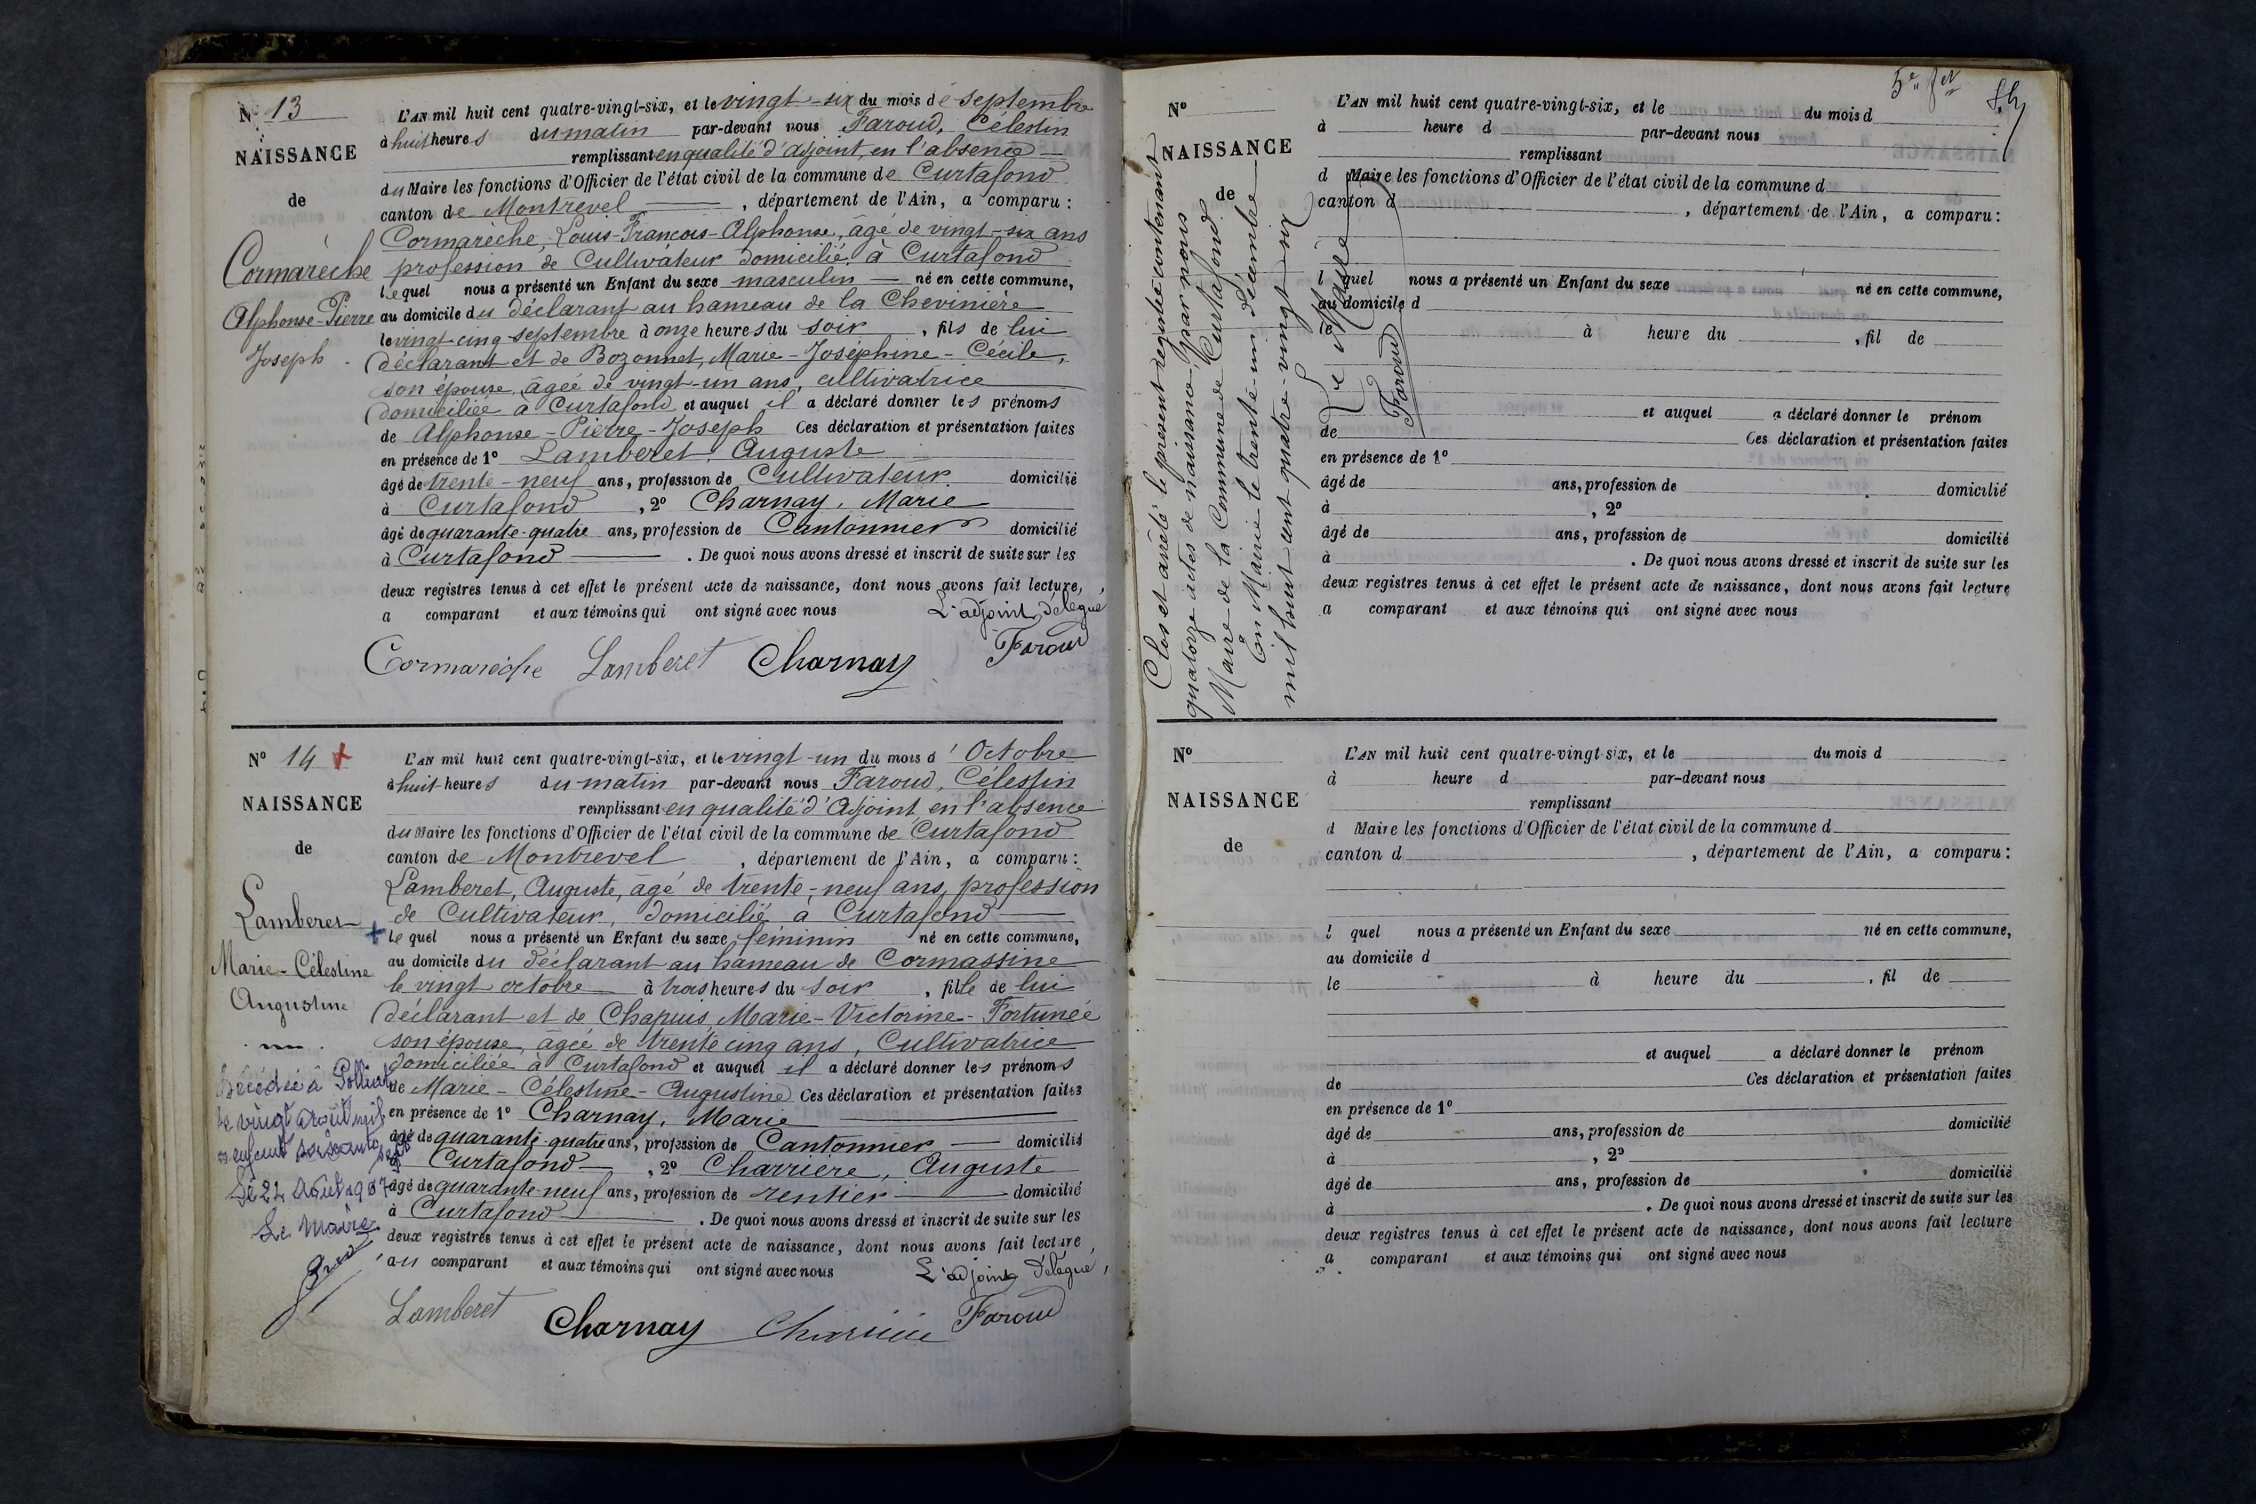 N° 13
NAISSANCE
de
Cormarèche
Alphonse-Pierre
Joseph.
L'AN mil huit cent quatre-vingt-six, et le vingt-six du mois de septembre
à huit heures du matin par-devant nous Faroud, Célestin
remplissant en qualité d'adjoint, en l'absence
du Maire les fonctions d'Officier de l'état civil de la commune de Curtafond
canton de Montrevel, département de l'Ain, a comparu:
Cormarèche, Louis-François-Alphonse, âgé de vingt-six ans
profession de Cultivateur domicilié à Curtafond
lequel nous a présenté un Enfant du sexe masculin né en cette commune,
au domicile du déclarant au hameau de la Chevinière
le vingt-cinq septembre à onze heures du soir, fils de lui
déclarant et de Bozonnet, Marie-Joséphine-Cécile,
son épouse, âgée de vingt-un ans, cultivatrice
domiciliée à Curtafond et auquel il a déclaré donner les prénoms
de Alphonse-Pierre-Joseph Ces déclaration et présentation faites
en présence de 1° Lamberet, Auguste
âgé de trente-neuf ans, profession de Cultivateur domicilié
à Curtafond, 2° Charnay, Marie
âgé de quarante-quatre ans, profession de Cantonnier domicilié
à Curtafond. De quoi nous avons dressé et inscrit de suite sur les
deux registres tenus à cet effet le présent acte de naissance, dont nous avons fait lecture,
a comparant et aux témoins qui ont signé avec nous
L'adjoint délégué
Cormarèche Lamberet Charnay Faroud
N° 14 +
NAISSANCE
de
Lamberet
Marie-Célestine
Augustine
Décédée à Polliat
le vingt août mil
neuf cent soixante sept
Le 22 Août 1967
Le Maire
L'AN mil huit cent quatre-vingt-six, et le vingt-un du mois d'Octobre
à huit heures du matin par-devant nous Faroud, Célestin
remplissant en qualité d'Adjoint, en l'absence
du Maire les fonctions d'Officier de l'état civil de la commune de Curtafond
canton de Montrevel, département de l'Ain, a comparu:
Lamberet, Auguste, âgé de trente-neuf ans, profession
de Cultivateur, domicilié à Curtafond
+ lequel nous a présenté un Enfant du sexe féminin né en cette commune,
au domicile du déclarant au hameau de Cormassine
le vingt octobre à trois heures du soir, fille de lui
déclarant et de Chapuis, Marie-Victorine-Fortunée
son épouse, âgée de trente cinq ans, Cultivatrice
domiciliée à Curtafond et auquel il a déclaré donner les prénoms
de Marie-Célestine-Augustine Ces déclaration et présentation faites
en présence de 1° Charnay, Marie
âgé de quarante-quatre ans, profession de Cantonnier domicilié
à Curtafond, 2° Charrière, Auguste
âgé de quarante-neuf ans, profession de rentier domicilié
à Curtafond. De quoi nous avons dressé et inscrit de suite sur les
deux registres tenus à cet effet le présent acte de naissance, dont nous avons fait lecture,
au comparant et aux témoins qui ont signé avec nous
L'adjoint délégué,
Lamberet Charnay Charrière Faroud
5e fet
N°
NAISSANCE
de
L'AN mil huit cent quatre-vingt-six, et le du mois d
à heure d par-devant nous
remplissant
d Maire les fonctions d'Officier de l'état civil de la commune d
canton d, département de l'Ain, a comparu:
l quel nous a présenté un Enfant du sexe né en cette commune,
au domicile d
le à heure du, fil de
et auquel a déclaré donner le prénom
de Ces déclaration et présentation faites
en présence de 1°
âgé de ans, profession de domicilié
à, 2°
âgé de ans, profession de domicilié
à. De quoi nous avons dressé et inscrit de suite sur les
deux registres tenus à cet effet le présent acte de naissance, dont nous avons fait lecture
a comparant et aux témoins qui ont signé avec nous
Clos et arrêté le présent registre contenant
quatorze actes de naissance, par nous
Maire de la Commune de Curtafond
En Mairie le trente-un décembre
mil huit cent quatre-vingt-six
Le Maire
Faroud
N°
NAISSANCE
de
L'AN mil huit cent quatre-vingt-six, et le du mois d
à heure d par-devant nous
remplissant
d Maire les fonctions d'Officier de l'état civil de la commune d
canton d, département de l'Ain, a comparu:
l quel nous a présenté un Enfant du sexe né en cette commune,
au domicile d
le à heure du, fil de
et auquel a déclaré donner le prénom
de Ces déclaration et présentation faites
en présence de 1°
âgé de ans, profession de domicilié
à, 2°
âgé de ans, profession de domicilié
à. De quoi nous avons dressé et inscrit de suite sur les
deux registres tenus à cet effet le présent acte de naissance, dont nous avons fait lecture
a comparant et aux témoins qui ont signé avec nous